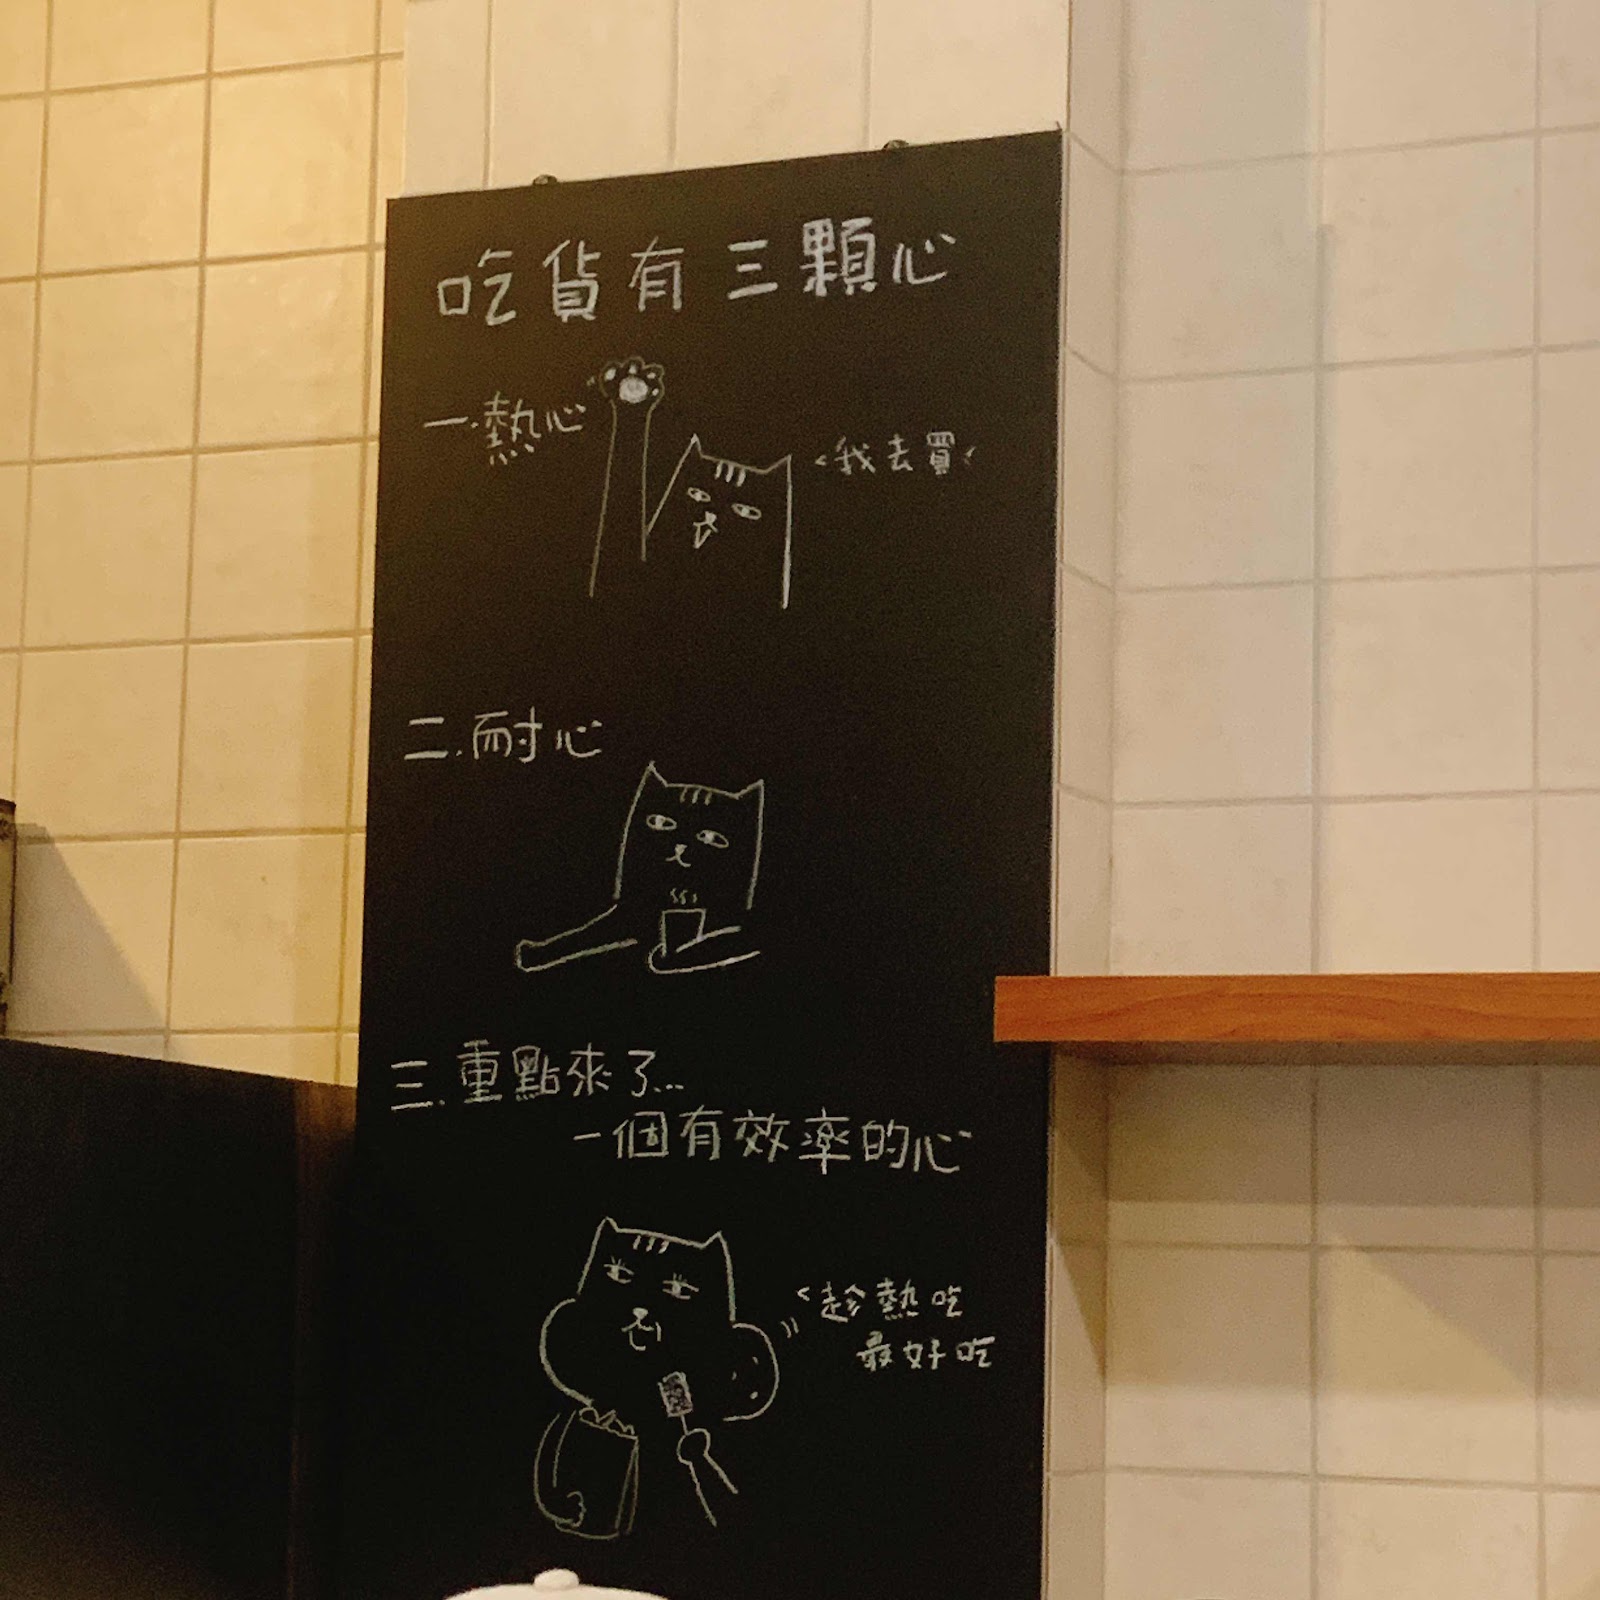 吃貨有三顆心
一.熱心
<我去買
二.耐心
三.重點來了...
一個有效率的心
<趁熱吃
最好吃